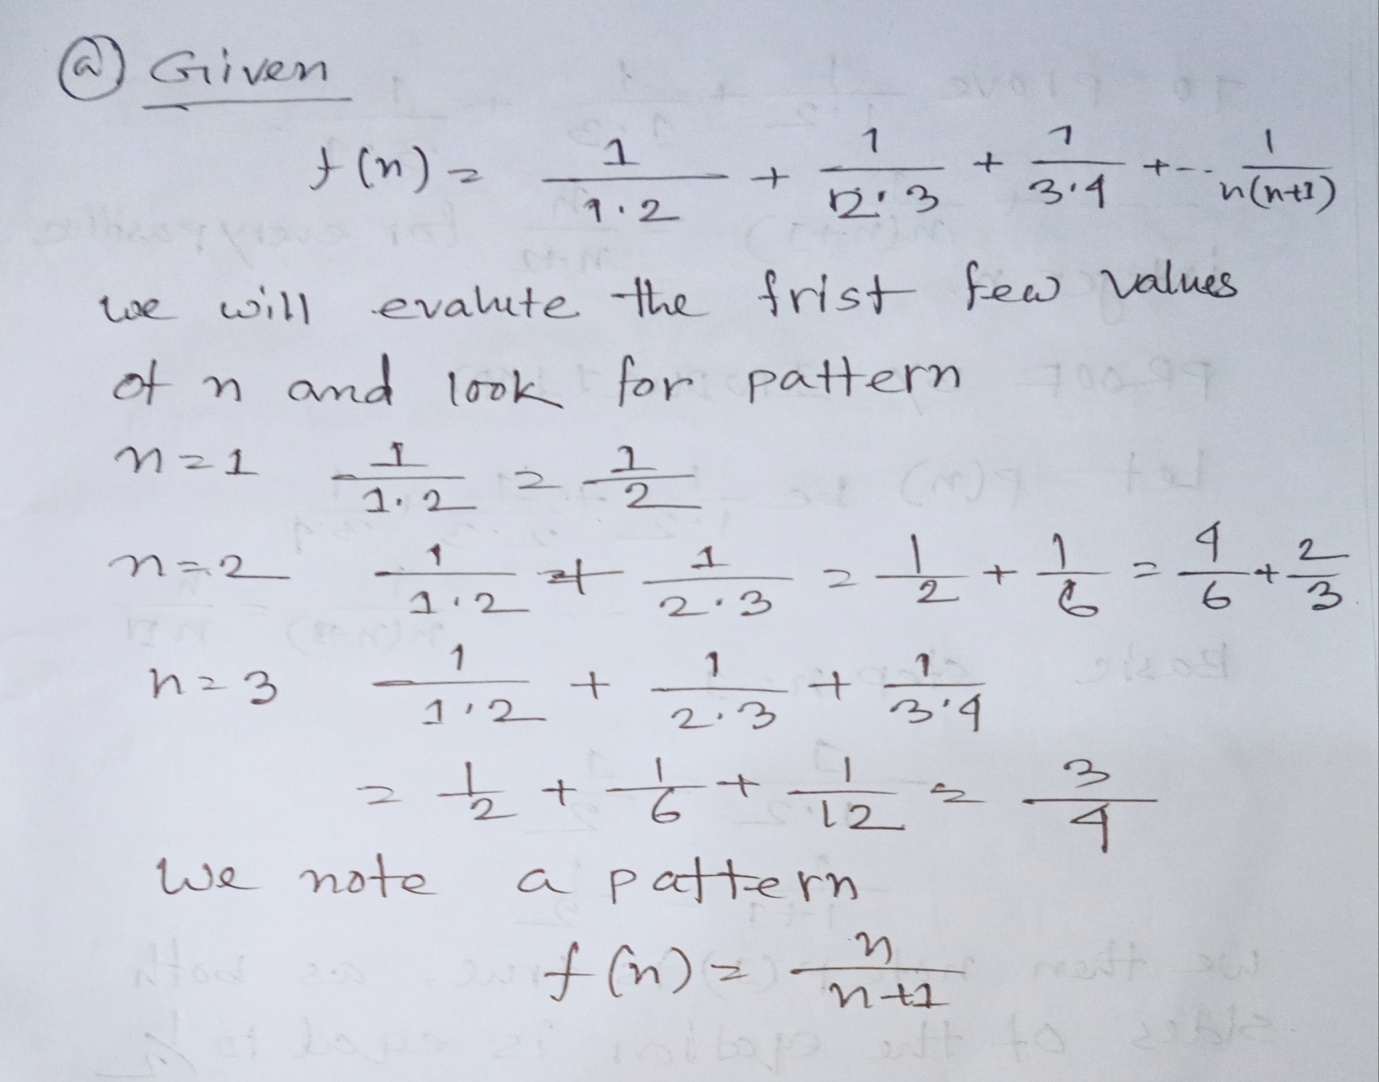 (a) Given
f(n) = 1/1·2 + 1/2·3 + 1/3·4 + -.. 1/n(n+1)
we will evalute the frist few values
of n and look for pattern
n=1 1/1·2 = 1/2
n=2 1/1·2 + 1/2·3 = 1/2 + 1/6 = 4/6 + 2/3
n=3 1/1·2 + 1/2·3 + 1/3·4
= 1/2 + 1/6 + 1/12 = 3/4
we note a pattern
f(n) = n/n+1